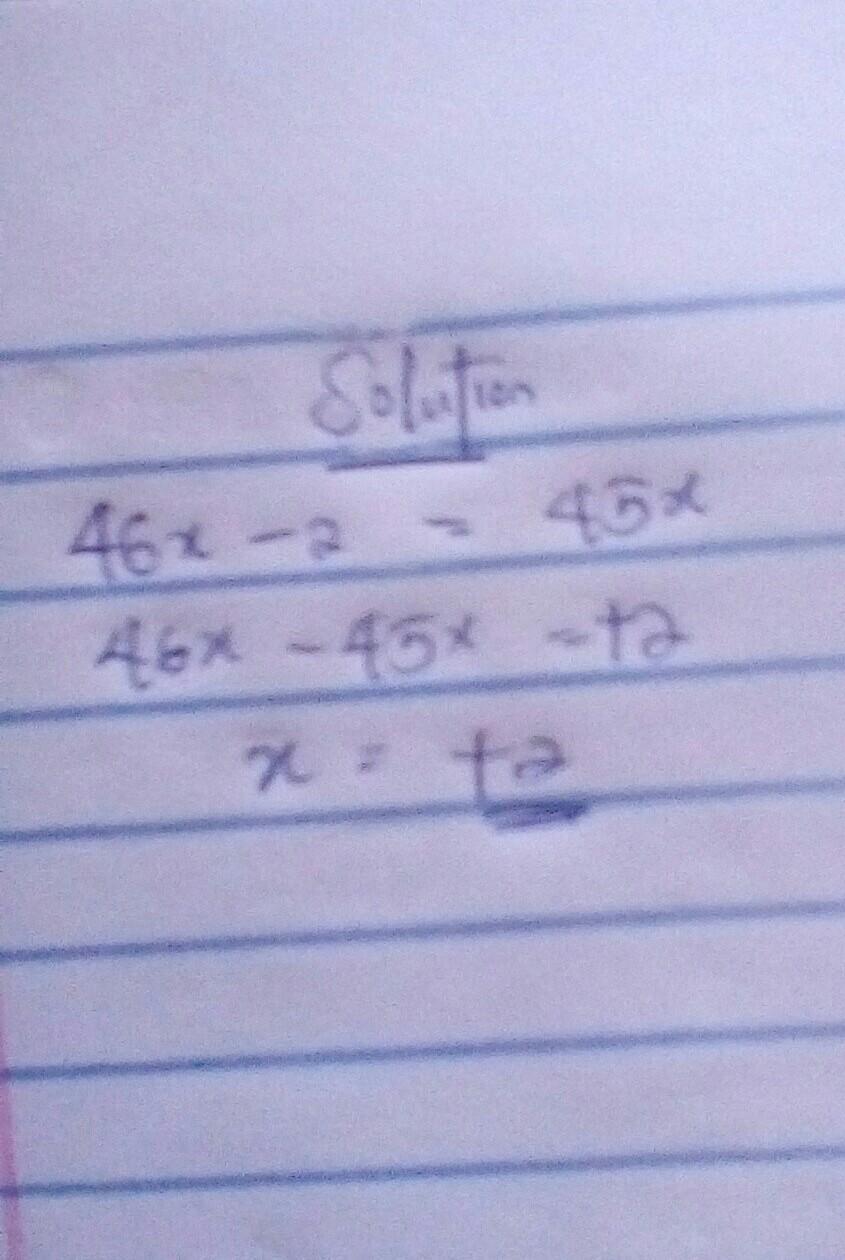 Solution
46x - 2 = 45x
46x - 45x = +2
x = +2